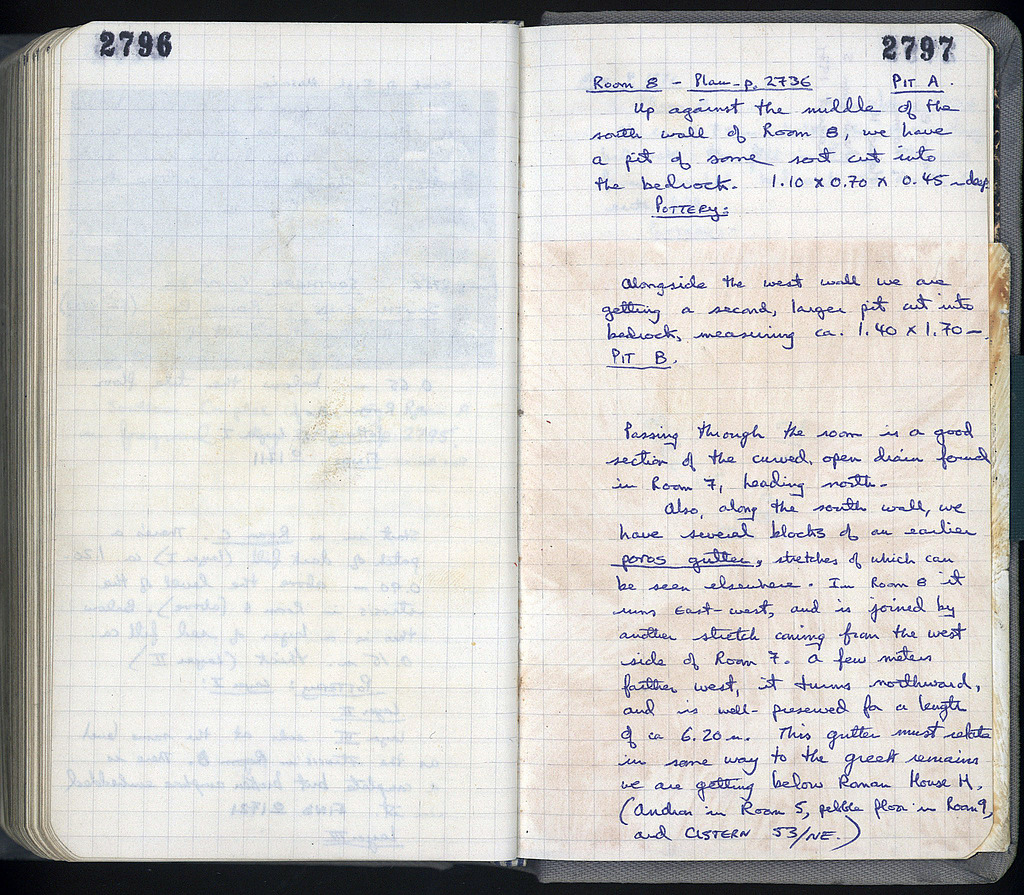 2796
2797
Room 8 - Plan - p. 2736 PIT A.
Up against the middle of the
south wall of Room 8, we have
a pit of some sort cut into
the bedrock. 1.10 x 0.70 x 0.45 m deep.
POTTERY:
Alongside the west wall we are
getting a second, larger pit cut into
bedrock, measuring ca. 1.40 x 1.70 m.
PIT B.
Passing through the room is a good
section of the curved, open drain found
in Room 7, heading north.
Also, along the south wall, we
have several blocks of an earlier
poros gutter, stretches of which can
be seen elsewhere. In Room 8 it
runs East-west, and is joined by
another stretch coming from the west
side of Room 7. A few meters
farther west, it turns northward,
and is well-preserved for a length
of ca 6.20 m. This gutter must relate
in some way to the greek remains
we are getting below Roman House H,
(Andron in Room 5, pebble floor in Room 9,
and CISTERN 53/NE.)